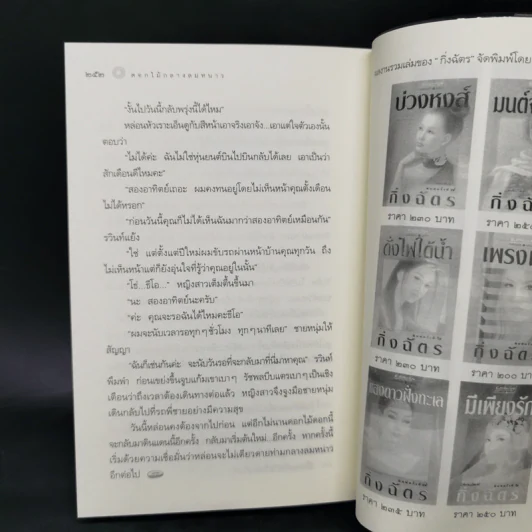 ๒๕๒ ดอกไม้กลางลมหนาว
"งั้นไปวันนี้กลับพรุ่งนี้ได้ไหม"
หล่อนหัวเราะเอ็นดูกับสีหน้าเอาจริงเอาจัง...เอาแต่ใจตัวเองนั้น
ตอบว่า
"ไม่ได้ค่ะ ฉันไม่ใช่หุ่นยนต์บินไปบินกลับได้เลย เอาเป็นว่า
สักเดือนดีไหมคะ"
"สองอาทิตย์เถอะ ผมคงทนอยู่โดยไม่เห็นหน้าคุณตั้งเดือน
ไม่ได้หรอก"
"ก่อนวันนี้คุณก็ไม่ได้เห็นฉันมากว่าสองอาทิตย์เหมือนกัน"
รวินท์แย้ง
"ใช่ แต่ตั้งแต่ปีใหม่ผมขับรถผ่านหน้าบ้านคุณทุกวัน ถึง
ไม่เห็นหน้าแต่ก็ยังอุ่นใจที่รู้ว่าคุณอยู่ในนั้น"
"โธ่...ธีโอ..." หญิงสาวเต็มตื้นขึ้นมา
"นะ สองอาทิตย์นะครับ"
"ค่ะ คุณจะรอฉันได้ไหมคะธีโอ"
"ผมจะนับเวลารอทุกๆชั่วโมง ทุกๆนาทีเลย" ชายหนุ่มให้
สัญญา
"ฉันก็เช่นกันค่ะ จะนับวันรอที่จะกลับมาที่นี่มาหาคุณ" รวินท์
พึมพำ ก่อนเขย่งขึ้นจูบแก้มเขาเบาๆ รัชพลบีบแตรเบาๆเป็นเชิง
เตือนว่าถึงเวลาต้องเดินทางต่อแล้ว หญิงสาวจึงจูงมือชายหนุ่ม
เดินกลับไปที่รถพี่ชายอย่างมีความสุข
วันนี้หล่อนคงต้องจากไปก่อน แต่อีกไม่นานดอกไม้ดอกนี้
จะกลับมาดินแดนนี้อีกครั้ง กลับมาเริ่มต้นใหม่...อีกครั้ง หากครั้งนี้
เริ่มด้วยความเชื่อมั่นว่าหล่อนจะไม่เดียวดายท่ามกลางลมหนาว
อีกต่อไป
ผลงานรวมเล่มของ "กิ่งฉัตร" จัดพิมพ์โดย
บ่วงหงส์
กิ่งฉัตร
ราคา ๒๓๐ บาท
มนต์
กิ่งฉัตร
ดั่งไฟใต้น้ำ
กิ่งฉัตร
ราคา ๒๓๐ บาท
เพรง
กิ่งฉัตร
ราคา ๒๐๐ บาท
ของดาวฝั่งทะเล
กิ่งฉัตร
ราคา ๒๓๕ บาท
มีเพียงรัก
กิ่งฉัตร
ราคา ๒๕๐ บาท